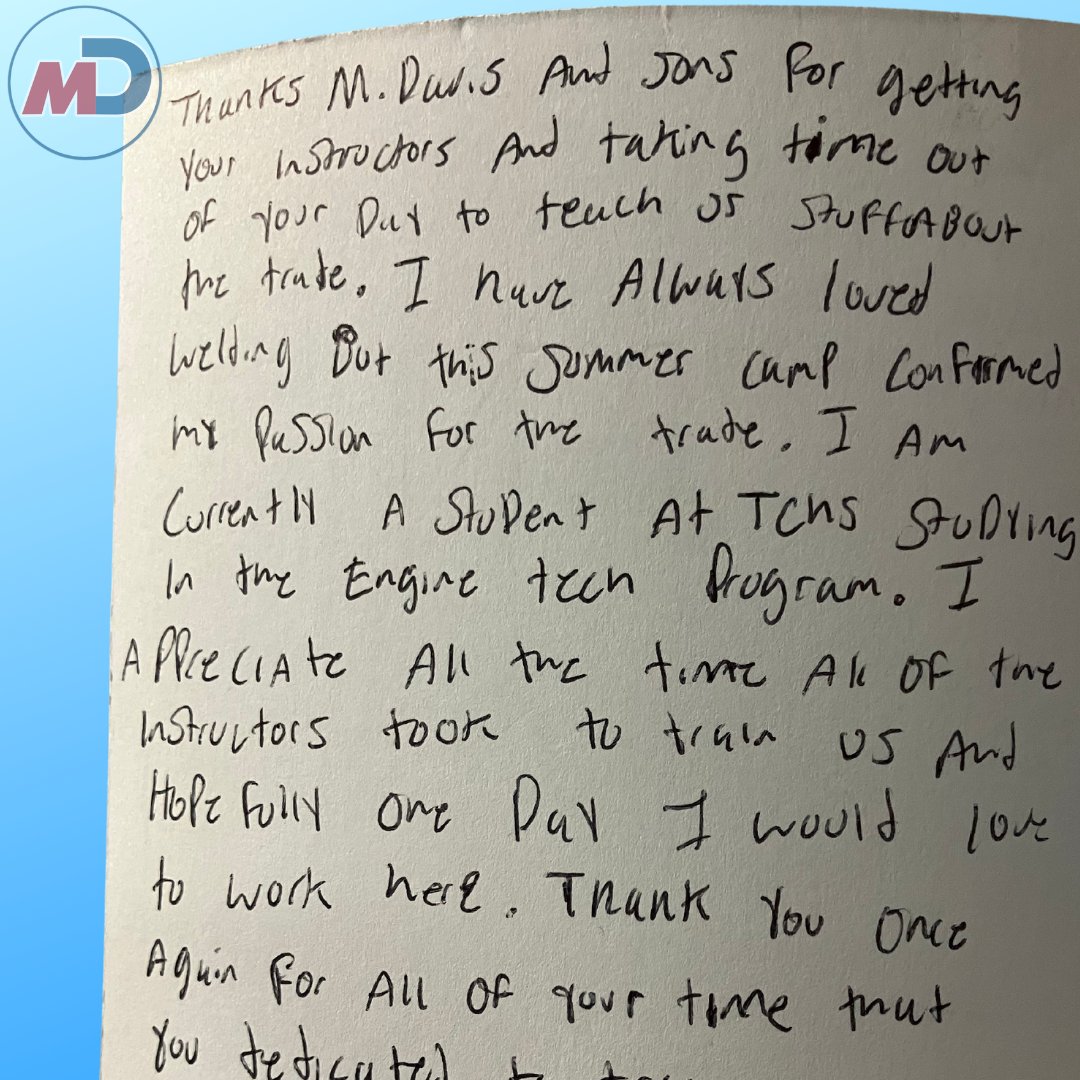 MD
Thanks M. Davis And sons For getting
your instructors And taking time out
of your Day to teach us stuff ABout
the trade. I have Always loved
welding But this summer camp confirmed
my passion for the trade. I Am
Currently A Student At TCHS Studying
In the Engine tech Program. I
Appreciate All the time All of the
Instructors took to train us And
Hopefully one Day I would love
to work here. Thank You Once
Again For All OF your time that
You dedicated to